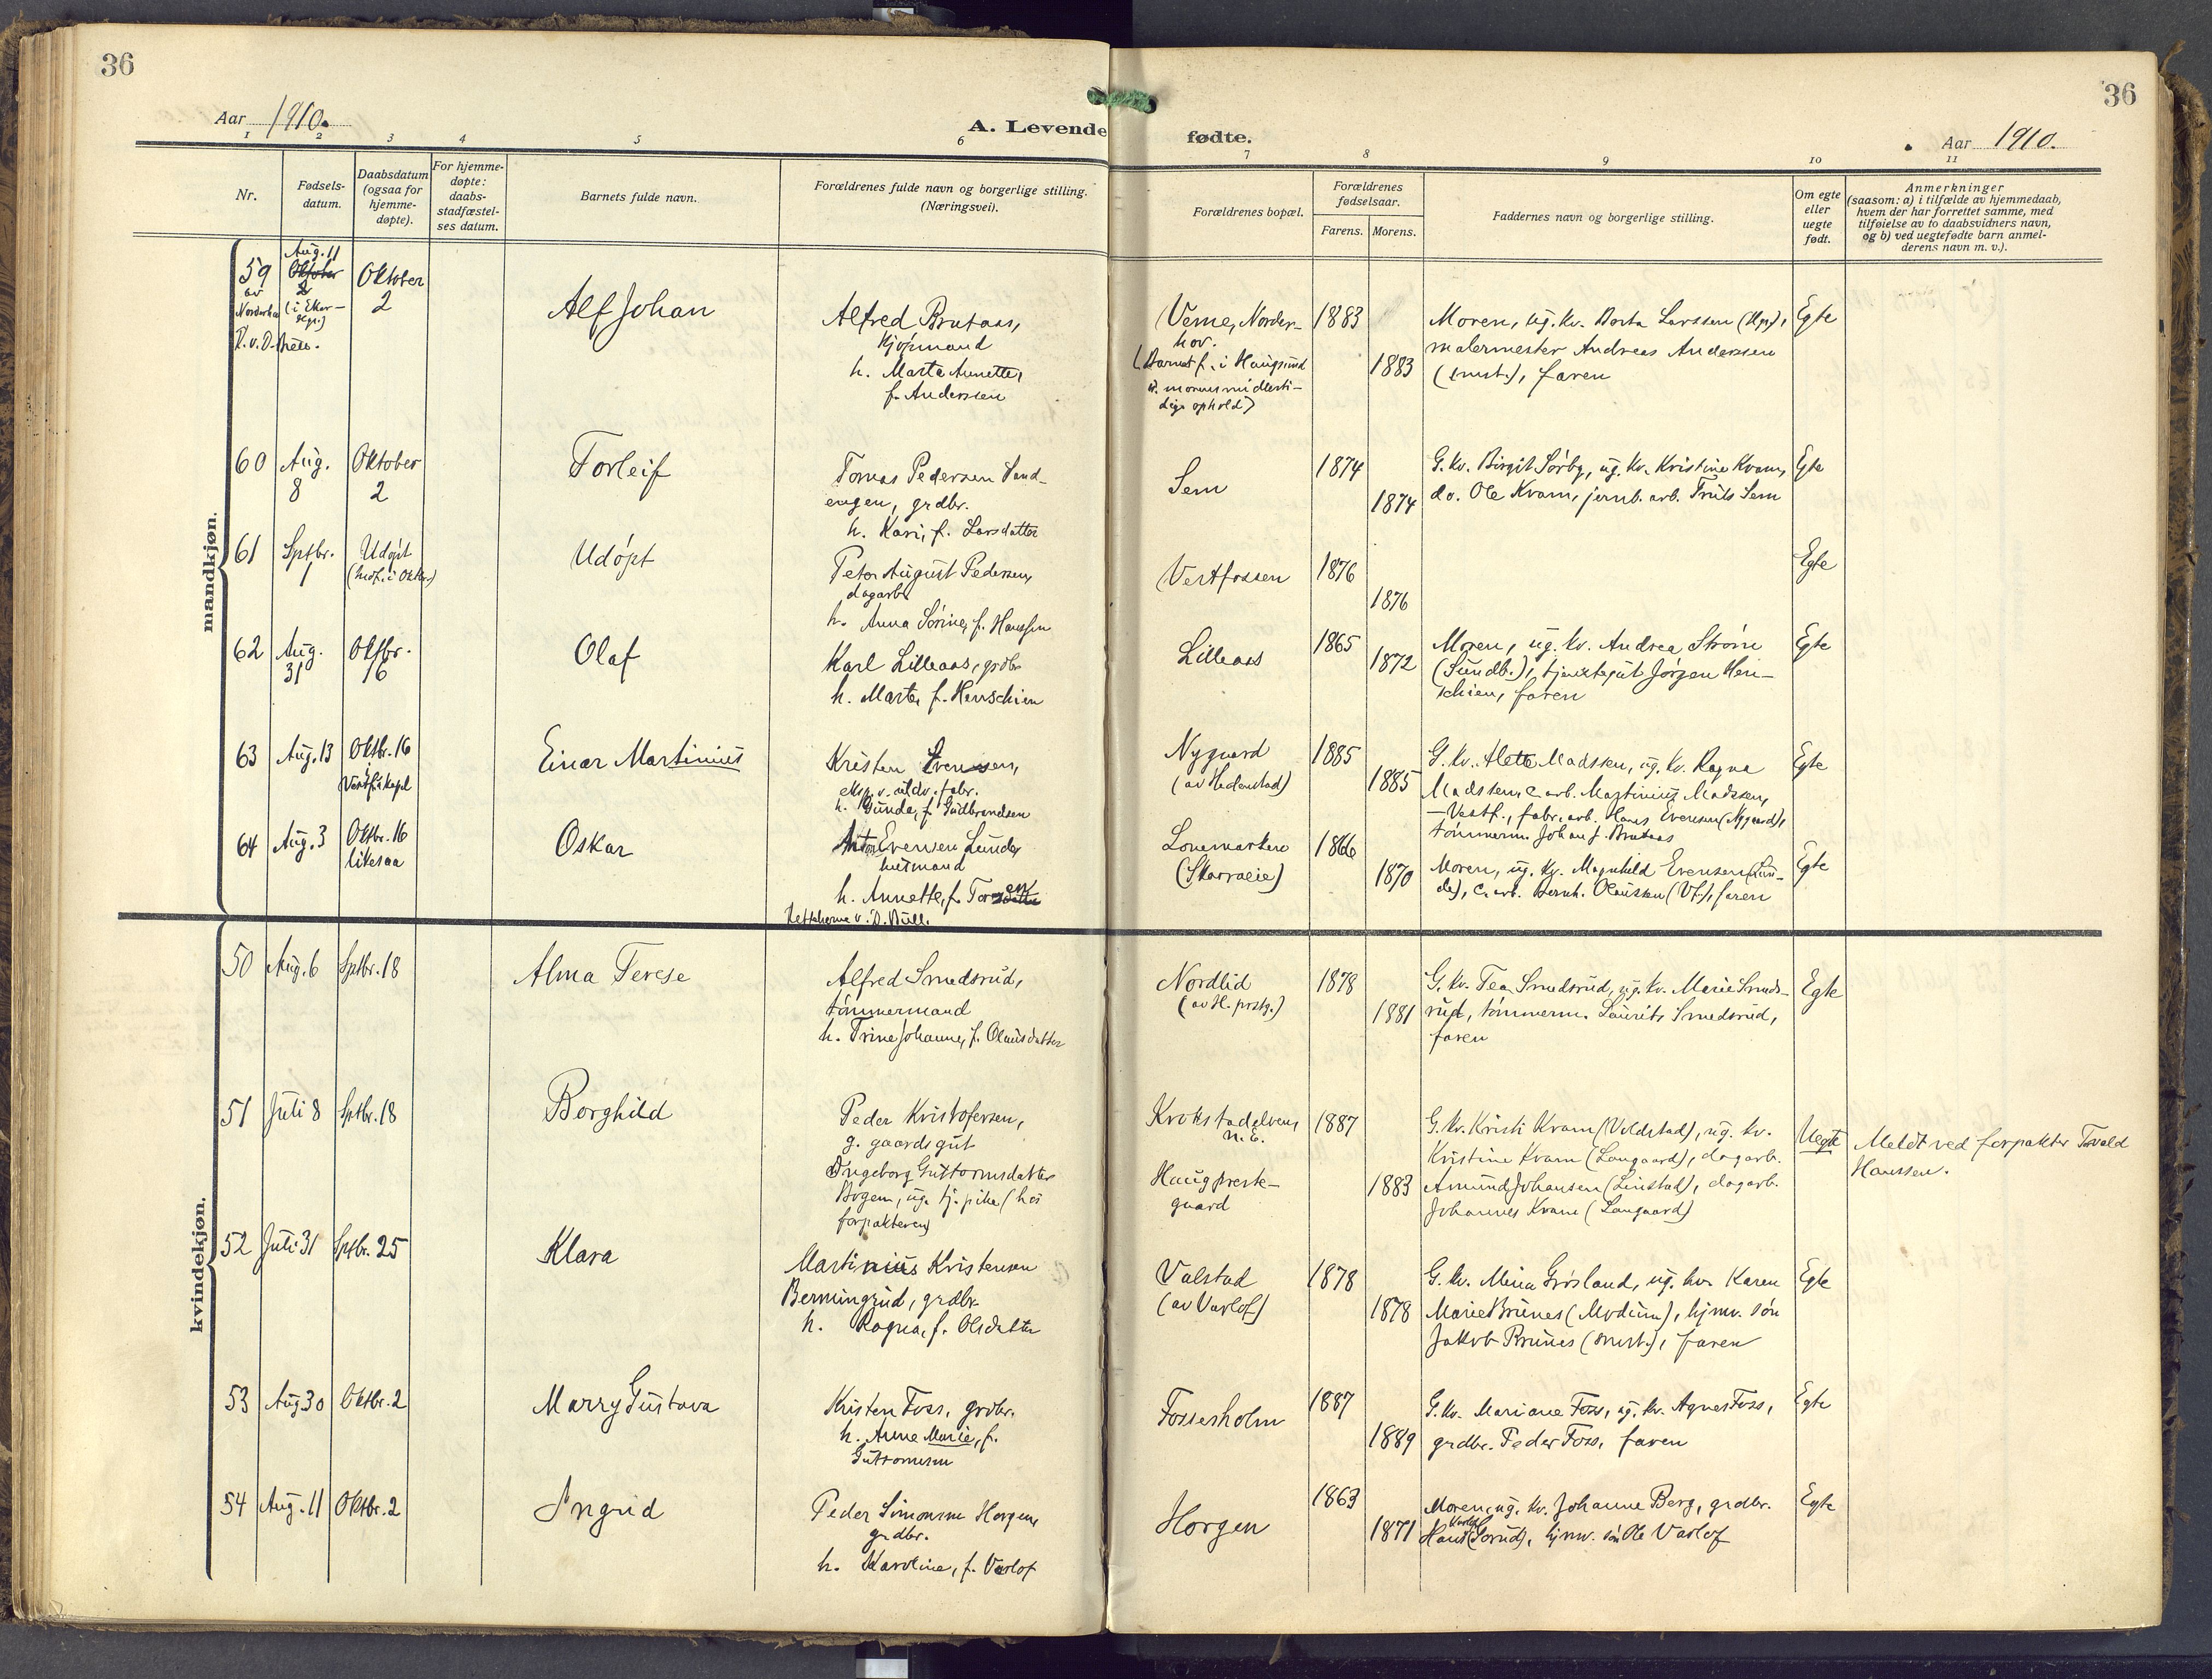 36
36
Aar 1910.
A. Levende fødte.
Aar 1910.
1 2 3 4 5 6 7 8 9 10 11
Nr.
Fødsels-
datum.
Daabsdatum
(ogsaa for
hjemme-
døpte).
For hjemme-
døpte:
daabs-
stadfæstel-
ses datum.
Barnets fulde navn.
Forældrenes fulde navn og borgerlige stilling.
(Næringsvei).
Forældrenes bopæl.
Forældrenes
fødselsaar.
Farens. Morens.
Faddernes navn og borgerlige stilling.
Om egte
eller
uegte
født.
Anmerkninger
(saasom: a) i tilfælde av hjemmedaab,
hvem der har forrettet samme, med
tilføielse av to daabsvidners navn,
og b) ved uegtefødte barn anmel-
derens navn m. v.).
mandkjøn.
59
av
Aug. 11
Oktober
2
(i Eker-
Oktober
2
Alf Johan
Alfred Brutaas,
kjøpmand
h. Marte Annette,
f. Anderssen
Veme, Norder-
hov.
(Barnet f. i Haugsund
dig ophold)
1883
1883
Moren, ug. kv. Berta Larssen (Hgs),
malermester Andreas Anderssen
faren
Egte
60
Aug.
8
Oktober
2
Torleif
Tomas Pedersen Sand-
engen, grdbr.
h. Kari, f. Larsdatter
Sem
1874
1874
G. kv. Birgit Sørby, ug. kv. Kristine Kvam,
do. Ole Kvam, jernb. arb. Truls Sem
Egte
61
Sptbr.
1
Udøpt
Udøpt
Peter August Pedersen,
dagarb.
h. Anna Sørine, f. Hanssen
Vestfossen
1876
1876
Egte
62
Aug.
31
Oktbr.
16
Olaf
Karl Lilleaas, grdbr.
h. Marte, f. Henschien
Lilleaas
1865
1872
Moren, ug. kv. Andrea Strøm
(Sundb.), tjenestegut Jørgen Hen-
schien, faren
Egte
63
Aug. 13
Oktbr. 16
i
Vestf.s kapel
Einar Martinius
Kristen Evensen,
eksp. v. uldv. fabr.
h. Gunda, f. Gudbrandsen
Nygaard
(av Hedenstad)
1885
1885
G. kv. Alette Madssen, ug. kv. Ragna
Madssen, c. arb. Martinius Madssen,
Vestf., fabr. arb. Hans Evensen (Nygaard),
tømmerm. Johan J. Brutaas
Egte
64
Aug. 3
Oktbr. 16
likesaa
Oskar
Anton Evensen Lunde,
husmand
h. Annette, f.
Lonemarken
(Skarraeie)
1866
1870
Moren, ug. kv. Magnhild Evensen (Lun-
de), c. arb. Bernh. Olaussen (Vf.), faren
Egte
kvindekjøn.
50
Aug. 6
Sptbr. 18
Alma Terese
Alfred Smedsrud,
tømmermand
h. Trine Johanne, f. Olausdatter
Nordlid
(av H. prstg.)
1878
1881
G. kv. Tea Smedsrud, ug. kv. Marie Smeds-
rud, tømmerm. Laurits Smedsrud,
faren
Egte
51
Juli 8
Sptbr. 18
Borghild
Peder Kristofersen,
g. gaardsgut
Ingeborg Guttormsdatter
Bogen, ug. tj. pike (hos
forpakteren)
Krokstadelven,
n. E.
Haug preste-
gaard
1887
1883
G. kv. Kristi Kvam (Voldstad), ug. kv.
Kristine Kvam (Langaard), dagarb.
Amund Johansen (Linstad), dagarb.
Johannes Kvam (Langaard)
Uegte
Meldt ved forpakter Tovald
Hanssen.
52
Juli 31
Sptbr. 25
Klara
Martinius Kristensen
Bermingrud, grdbr.
h. Ragna, f. Olsdatter
Valstad
(av Varlof)
1878
1878
G. kv. Mina Grøsland, ug. kv. Karen
Marie Brunes (Modum), hjmv. søn
Jakob Brunes faren
Egte
53
Aug 30
Oktbr. 2
Marry Gustava
Kristen Foss, grdbr.
h. Anne Marie, f.
Guttormsen
Fossesholm
1887
1889
G. kv. Mariane Foss, ug. kv. Agnes Foss,
grdbr. Peder Foss, faren
Egte
54
Aug. 11
Oktbr. 2
Ingrid
Peder Simonsen Horgen,
grdbr.
h. Karoline, f. Varlof
Horgen
1863
1871
Moren, ug. kv. Johanne Berg, grdbr.
Hans Varlof (Sorud), hjmv. søn Ole Varlof
Egte